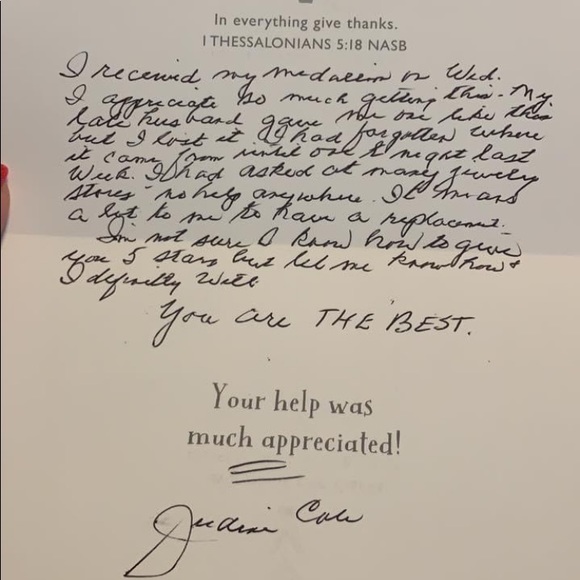 In everything give thanks.
1 THESSALONIANS 5:18 NASB
I received my medallion on Wed.
I appreciate so much getting this. My
late husband gave me one like this
but I lost it & I had forgotten where
it came from until one night last
week. I had asked at many jewelry
stores - no help anywhere. It means
a lot to me to have a replacement.
I'm not sure I know how to give
you 5 stars but let me know how &
I definitly will
You are THE BEST.
Your help was
much appreciated!
Cole